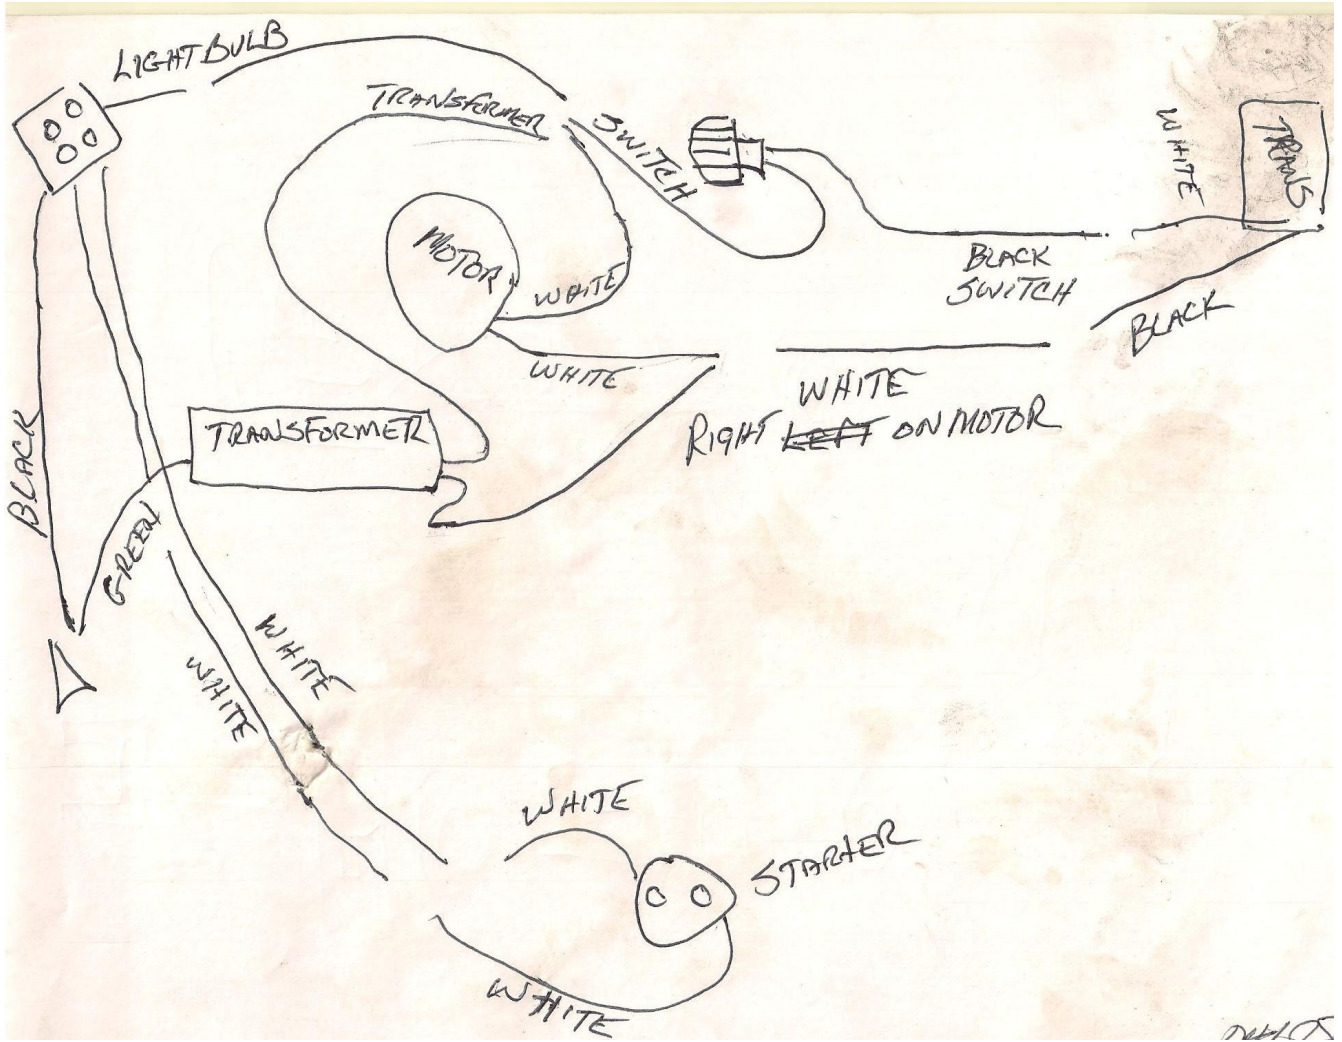 LIGHT BULB
TRANSFORMER
SWITCH
WHITE
TRANS
MOTOR
WHITE
BLACK
SWITCH
BLACK
WHITE
WHITE
RIGHT LEFT ON MOTOR
TRANSFORMER
BLACK
GREEN
WHITE
WHITE
WHITE
STARTER
WHITE